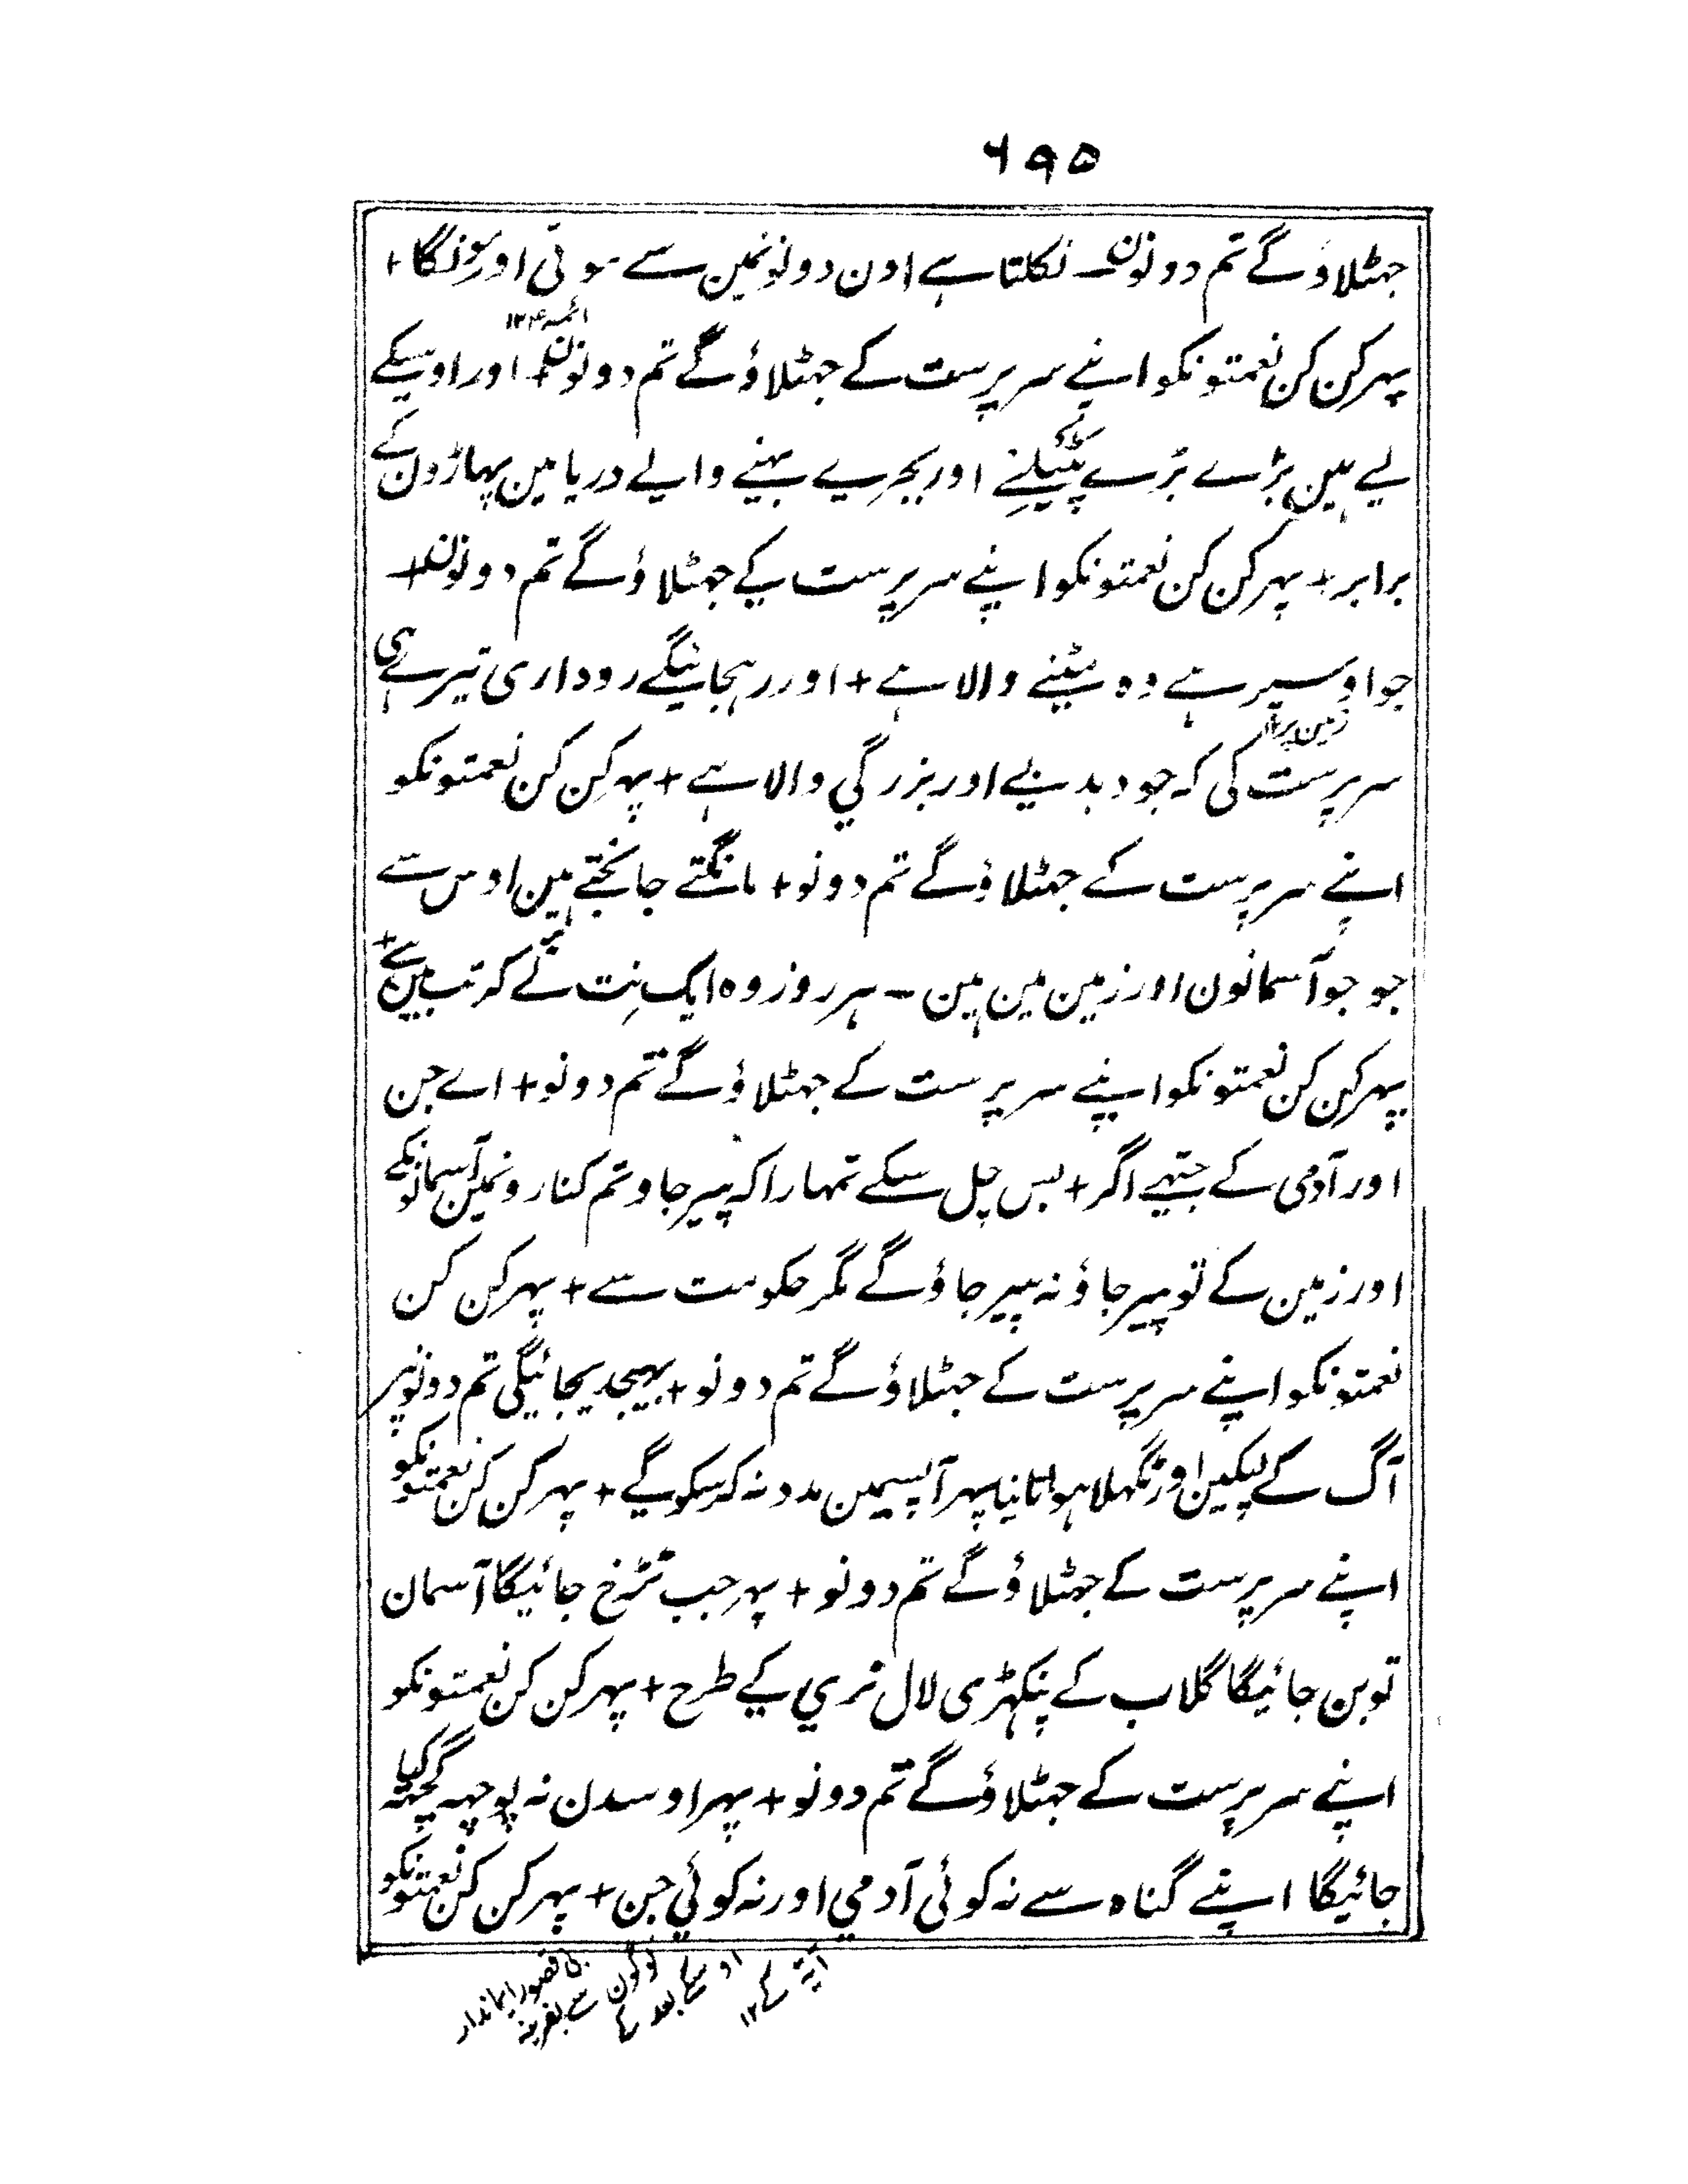 ۶۹۵
جہٹلاؤ گے تم دونون ـ نکلتا ہے اون دونونمین سے موتی اور مونگا +
ائمہ ۱۲
پہر کن کن نعمتونکو اپنے سرپرست کے جہٹلاؤ گے تم دونون + اور اوسیکے
لیے ہین بڑے بڑے اور بجرے بہنے والے دریا مین پہاڑون کے
برابر + پہر کن کن نعمتونکو اپنے سرپرست کے جہٹلاؤ گے تم دونون +
جو اوسپر ہے وہ مٹنے والا ہے + اور رہجائیگے روداری تیرے ہی
زمین پر ۱۲
سرپرست کی کہ جو دبدبے اور بزرگي والا ہے + پہر کن کن نعمتونکو
اپنے سرپرست کے جہٹلاؤ گے تم دونو + مانگتے جانچتے ہین اوس سے
جو جو آسمانون اور زمین مین ہین ـ ہر روز وہ ایک نِت نئے کرتب مین ہے +
پہر کن کن نعمتونکو اپنے سرپرست کے جہٹلاؤ گے تم دونو + اے جن
اور آدمی کے جتہے اگر + بس چل سکے تمہارا کہ پیر جاو تم کنارونمین آسمانونکے
اور زمین کے تو پیر جاؤ نہ پیر جاؤ گے مگر حکومت سے + پہر کن کن
نعمتونکو اپنے سرپرست کے جہٹلاؤ گے تم دونو + بہیجدیجائیگی تم دونوپر
آگ کے لپکین اور پگہلا ہوا تانبا پہر آپسیمین مدد نہ کرسکو گے + پہر کن کن نعمتونکو
اپنے سرپرست کے جہٹلاؤ گے تم دونو + پہر جب تڑخ جائیگا آسمان
تو بن جائیگا گلاب کے پنکہڑی لال نری کے طرح + پہر کن کن نعمتونکو
اپنے سرپرست کے جہٹلاؤ گے تم دونو + پہر اوسدن نہ پوچہہ گچہہ کیا
جائیگا اپنے گناہ سے نہ کوئی آدمي اور نہ کوئي جن + پہر کن کن نعمتونکو